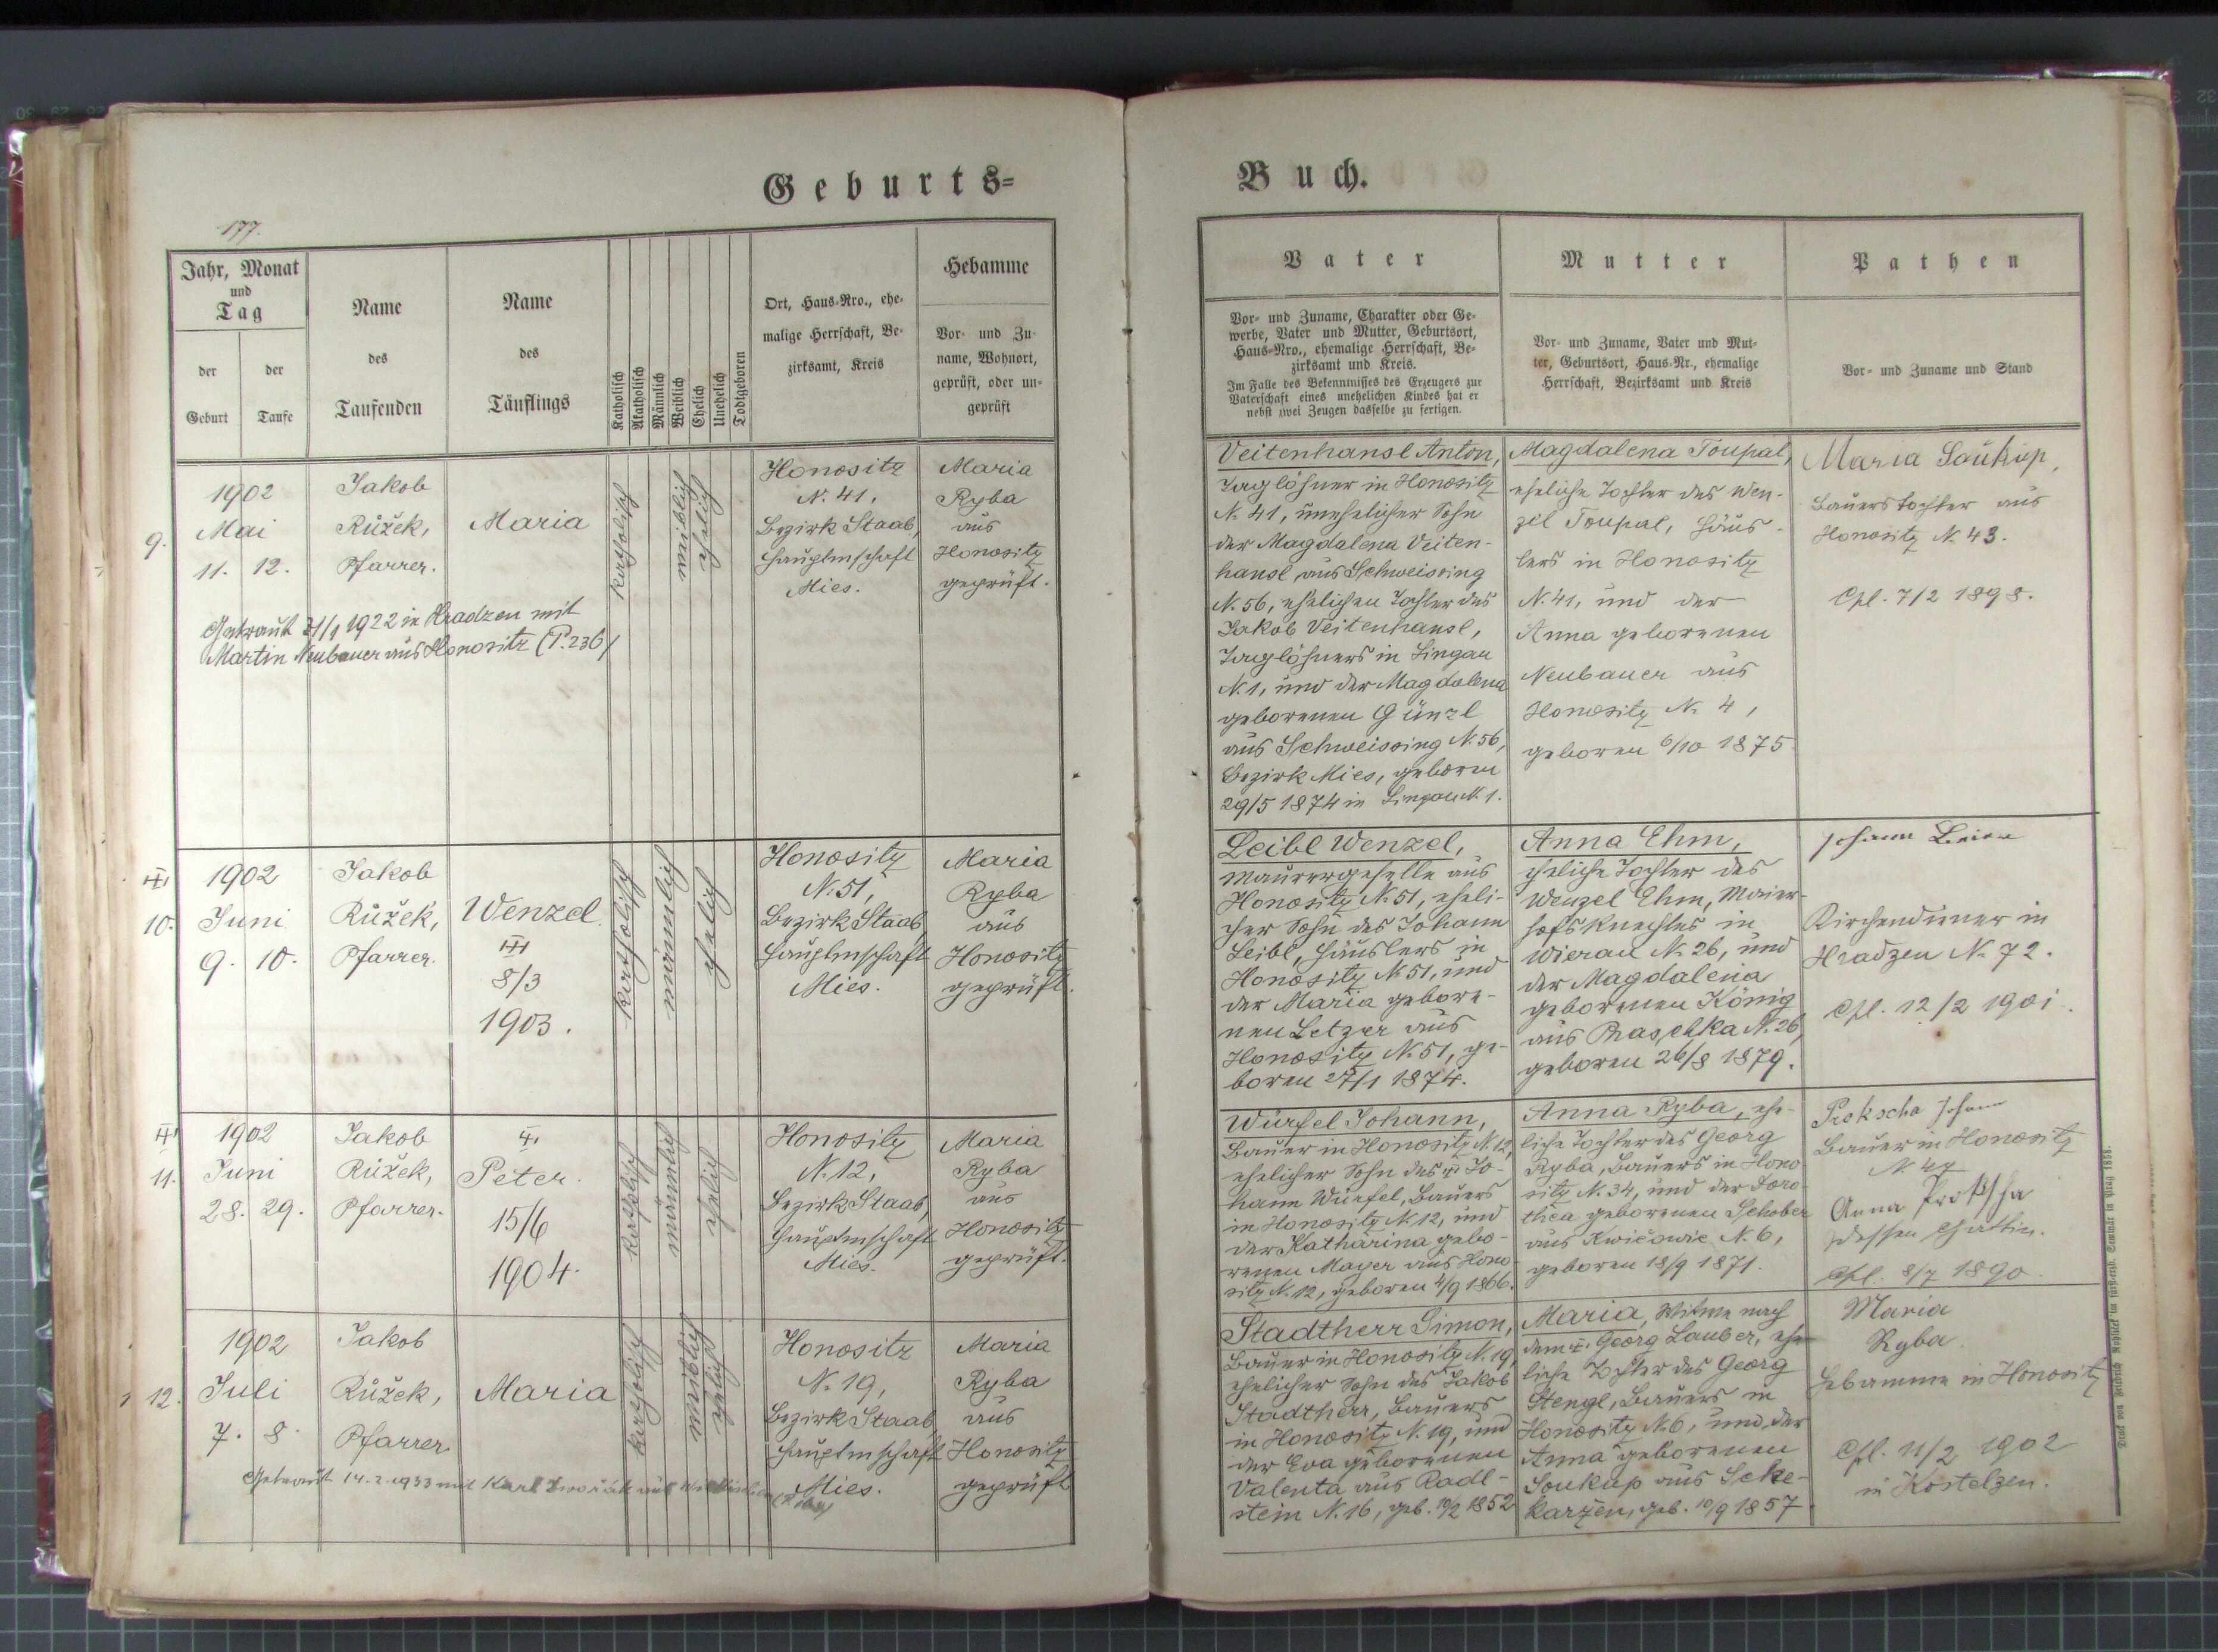 Geburts=
Buch.
177.
Jahr, Monat
und
Tag
der
Geburt
der
Taufe
Name
des
Taufenden
Name
des
Täuflings
Katholisch
Akatholisch
Männlich
Weiblich
Ehelich
Unehelich
Todtgeboren
Ort, Haus-Nro., ehe-
malige Herrschaft, Be-
zirksamt, Kreis
Hebamme
Vor- und Zu-
name, Wohnort,
geprüft, oder un-
geprüft
Vater
Vor- und Zuname, Charakter oder Ge-
werbe, Vater und Mutter, Geburtsort,
Haus-Nro., ehemalige Herrschaft, Be-
zirksamt und Kreis.
Im Falle des Bekenntnisses des Erzeugers zur
Vaterschaft eines unehelichen Kindes hat er
nebst zwei Zeugen dasselbe zu fertigen.
Mutter
Vor- und Zuname, Vater und Mut-
ter, Geburtsort, Haus-Nr., ehemalige
Herrschaft, Bezirksamt und Kreis
Pathen
Vor- und Zuname und Stand
9.
1902
Mai
11. 12.
Jakob
Růžek,
Pfarrer.
Maria
katholisch
weiblich
ehelich
Honositz
N. 41,
Bezirk Staab,
Hauptmschaft
Mies.
Maria
Ryba
aus
Honositz
geprüft.
Getraut 31/1 1922 in Hradzen mit
Martin Neubauer aus Honositz (P. 236)
Veitenhansl Anton,
Taglöhner in Honositz
N. 41, unehelicher Sohn
der Magdalena Veiten-
hansl aus Schweissing
N. 56, ehelichen Tochter des
Jakob Veitenhansl,
Taglöhners in Lingau
N. 1, und der Magdalena
geborenen Günzl
aus Schweissing N. 56,
Bezirk Mies, geboren
29/5 1874 in Lingau N. 1.
Magdalena Toupal,
eheliche Tochter des Wen-
zel Toupal, Häus-
lers in Honositz
N. 41, und der
Anna geborenen
Neubauer aus
Honositz N. 4,
geboren 6/10 1875
Maria Saukup,
Bauerstochter aus
Honositz N. 43.
Cpl. 7/2 1898.
10.
1902
Juni
9. 10.
Jakob
Růžek,
Pfarrer.
Wenzel
8/3
1903.
katholisch
männlich
ehelich
Honositz
N. 51,
Bezirk Staab,
Hauptmschaft
Mies.
Maria
Ryba
aus
Honositz
geprüft.
Leibl Wenzel,
Maurergeselle aus
Honositz N. 51, eheli-
cher Sohn des Johann
Leibl, Häuslers in
Honositz N. 51, und
der Maria gebore-
nen Letzer aus
Honositz N. 51, ge-
boren 27/1 1874.
Anna Ehm,
eheliche Tochter des
Wenzel Ehm, Maier-
hofsknechtes in
Wierau N. 26, und
der Magdalena
geborenen König
aus Raschka N. 26,
geboren 26/8 1879.
Johann
Kirchendiener in
Hradzen N. 72.
Cpl. 12/2 1901.
11.
1902
Juni
28. 29.
Jakob
Růžek,
Pfarrer.
Peter.
15/6
1904.
katholisch
männlich
ehelich
Honositz
N. 12,
Bezirk Staab,
Hauptmschaft
Mies.
Maria
Ryba
aus
Honositz
geprüft.
Würfel Johann,
Bauer in Honositz N. 12,
ehelicher Sohn des Jo-
hann Würfel, Bauers
in Honositz N. 12, und
der Katharina gebo-
renen Mayer aus Hono-
sitz N. 12, geboren 4/9 1866.
Anna Ryba, ehe-
liche Tochter des Georg
Ryba, Bauers in Hono
sitz N. 34, und der Doro-
thea geborenen Schober
aus Kwičowic N. 6,
geboren 18/9 1871.
Prokscha Johann
Bauer in Honositz
N 47
Anna Prokscha
dessen Gattin.
Cpl. 8/7 1890.
12.
1902
Juli
7. 8.
Jakob
Růžek,
Pfarrer
Maria
katholisch
weiblich
ehelich
Honositz
N. 19,
Bezirk Staab,
Hauptmschaft
Mies.
Maria
Ryba
aus
Honositz
geprüft
Getraut 14.2.1933 mit Karl
Stadtherr Simon,
Bauer in Honositz N. 19,
ehelicher Sohn des Jakob
Stadtherr, Bauers
in Honositz N. 19, und
der Eva geborenen
Valenta aus Radl-
stein N. 16, geb. 10/2 1852
Maria, Witwe nach
dem Georg Lauber, ehe-
liche Tochter des Georg
Stengl, Bauers in
Honositz N. 6, und der
Anna geborenen
Soukup aus Scke-
karzen, geb. 10/9 1857
Maria
Ryba
Hebamme in Honositz
Cpl. 11/2 1902
in Kostelzen.